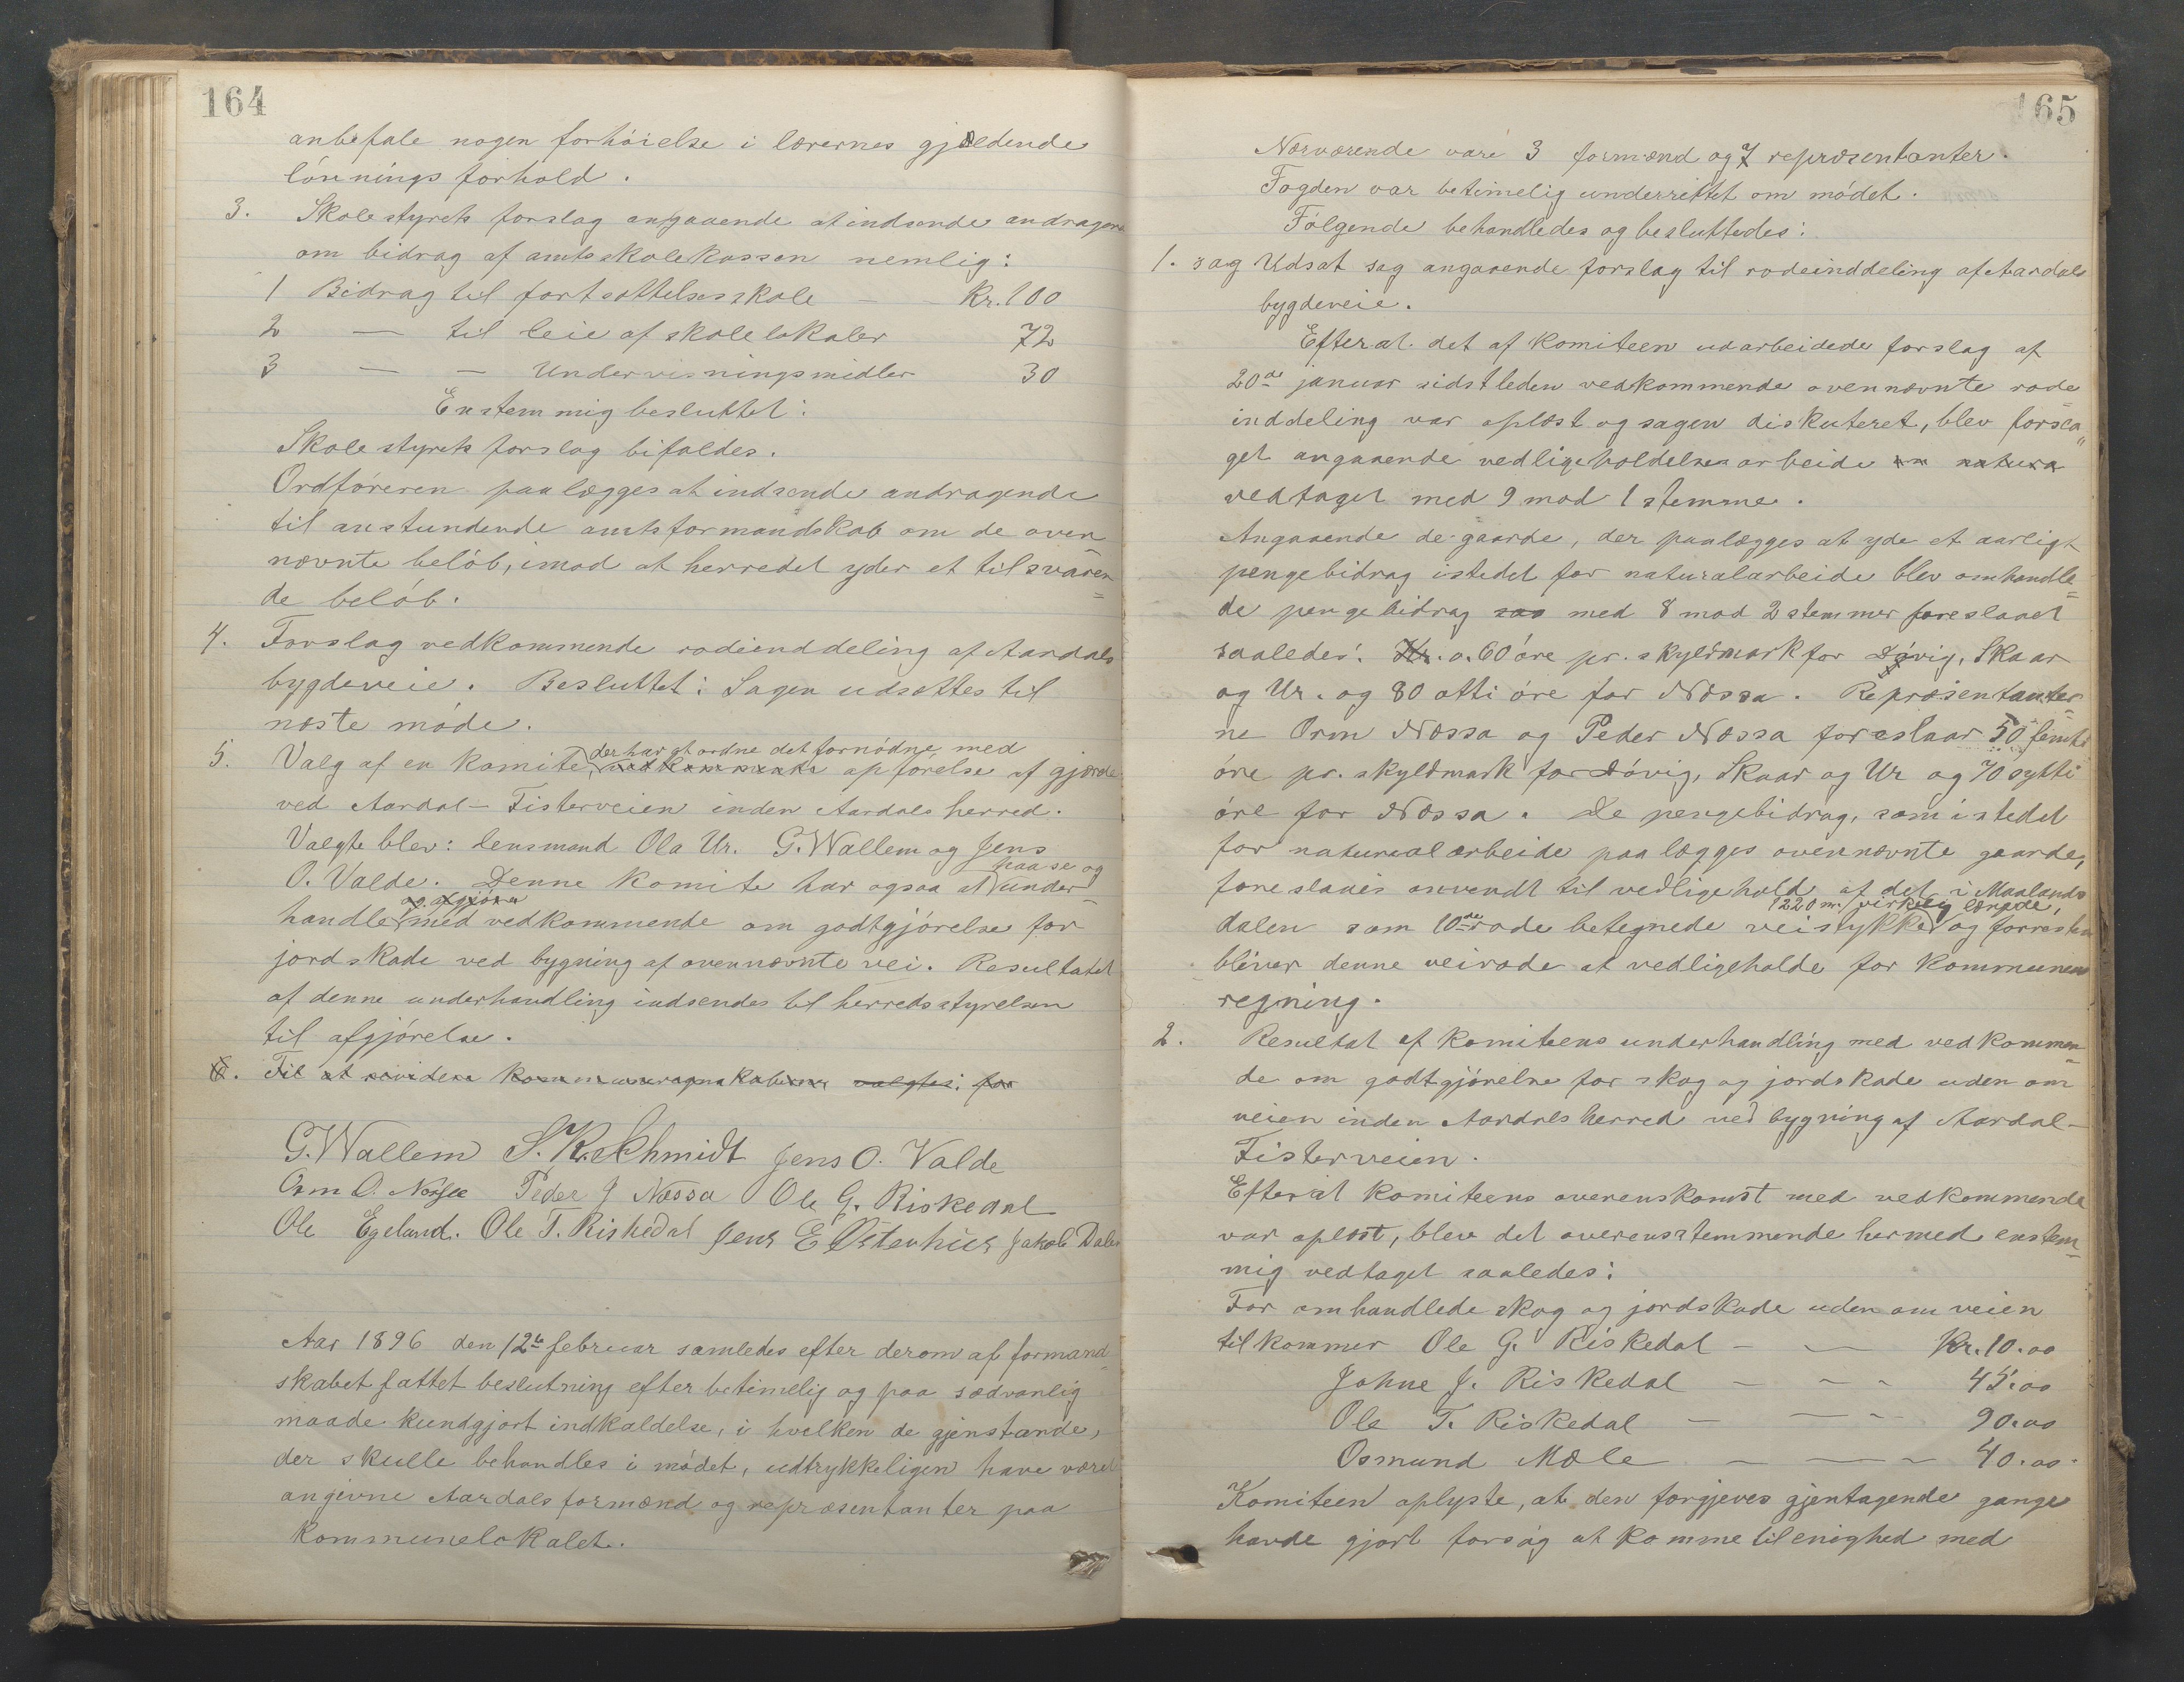 164
anbefale nogen forhöielse i lærernes gjældende
lönningsforhold.
3. Skolestyrets forslag angaaende at indsende andragende
om bidrag af amtsskolekassen nemlig:
1 Bidrag til fortsættelsesskole — Kr. 100
2 — til leie af skolelokaler 72
3 — — Undervisningsmidler 30
Enstemmig besluttet:
Skolestyrets forslag bifaldes.
Ordföreren paalægges at indsende andragende
til anstundende amtsformandskab om de oven=
nævnte belöb, imod at herredet yder et tilsvaren=
de belöb.
4. Forslag vedkommende rodeinddeling af Aardals
bygdeveie. Besluttet: Sagen udsættes til
næste möde.
der har at ordne det fornödne med
5. Valg af en komite vedkommende opförelse af gjærde
ved Aardal–Fisterveien inden Aardals herred.
Valgte blev: lensmand Ola Ur. G. Wallem og Jens
paase og
O. Valde. Denne komite har ogsaa at under=
og afgjöra
handle med vedkommende om godtgjörelse for
jordskade ved bygning af ovennævnte vei. Resultatet
af denne underhandling indsendes til herredsstyrelsen
til afgjörelse.
6. Til at revidere kommuneregnskaberne valgtes: for
G. Wallem S. K. Schmidt Jens O. Valde
Orm O. Nessee Peder J Næssa Ole G. Riskedal
Ole Egeland. Ole T. Riskedal Jens E Østenhus Jakob Dale
Aar 1896 den 12te februar samledes efter derom af formand=
skabet fattet beslutning efter betimelig og paa sædvanlig
maade kundgjort indkaldelse, i hvilken de gjenstande,
der skulle behandles i mödet, udtrykkeligen have været
angivne Aardals formænd og repræsentanter paa
kommunelokalet.
165
Nærværende vare 3 formænd og 7 repræsentanter.
Fogden var betimelig underrettet om mödet.
Fölgende behandledes og besluttedes:
1. sag Udsat sag angaaende forslag til rodeinddeling af Aardals
bygdeveie.
Efterat det af komiteen udarbeidede forslag af
20de januar sidstleden vedkommende ovennævnte rode=
inddeling var oplæst og sagen diskuteret, blev forsla=
get angaaende vedligeholdelsesarbeide in natura
vedtaget med 9 mod 1 stemme.
Angaaende de gaarde, der paalægges at yde et aarligt
pengebidrag istedet for naturalarbeide blev omhandle=
de pengebidrag saa med 8 mod 2 stemmer foreslaaet
saaledes: Kr. o. 60 öre pr. skyldmark for Lövig, Skaar
og Ur. og 80 otti öre for Næssa. Repræsentanter=
ne Orm Næssa og Peder Næssa foreslaar 50 femti
öre pr. skyldmark for Lövig, Skaar og Ur og 70 sytti
öre for Næssa. De pengebidrag, som istedet
for naturalarbeide paalægges ovennævnte gaarde,
foreslaaes anvendt til vedligehold af det i Maalands=
1220 m. virkelig længde,
dalen som 10de rode betegnede veistykke og forresten
bliver denne veirode at vedligeholde for kommunens
regning.
2. Resultat af komiteens underhandling med vedkommen=
de om godtgjörelse for skog og jordskade uden om
veien inden Aardals herred ved bygning af Aardal–
Fisterveien.
Efterat komiteens overenskomst med vedkommende
var oplæst, blev det overensstemmende hermed enstem=
mig vedtaget saaledes:
For omhandlede skog og jordskade uden om veien
tilkommer Ole G. Riskedal — — Kr. 10.00
Johne J. Riskedal — — — 45.00
Ole T. Riskedal — — — 90.00
Osmund Mæle — — — 40.00.
Komiteen oplyste, at den forgjeves gjentagende gange
havde gjort forsög at komme til enighed med